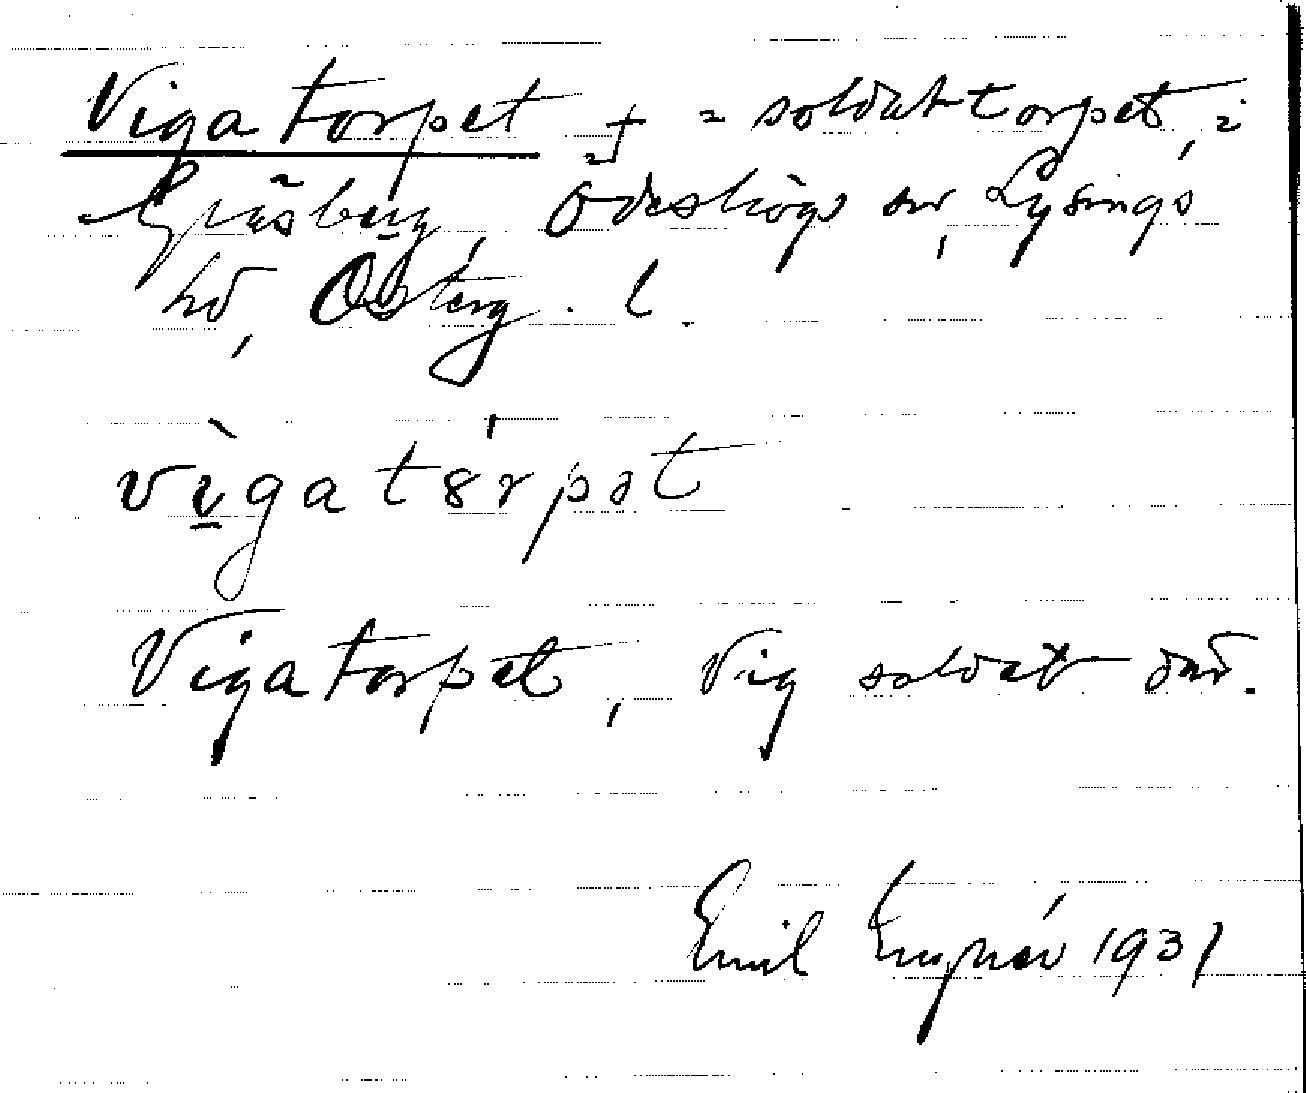 Vigatorpet + = soldattorpet, i
Gräsberg, Ödeshögs sn, Lysings
hd, Österg. l.
vìgatȣrpət
Vigatorpet, Vig soldat där.
Emil 1931